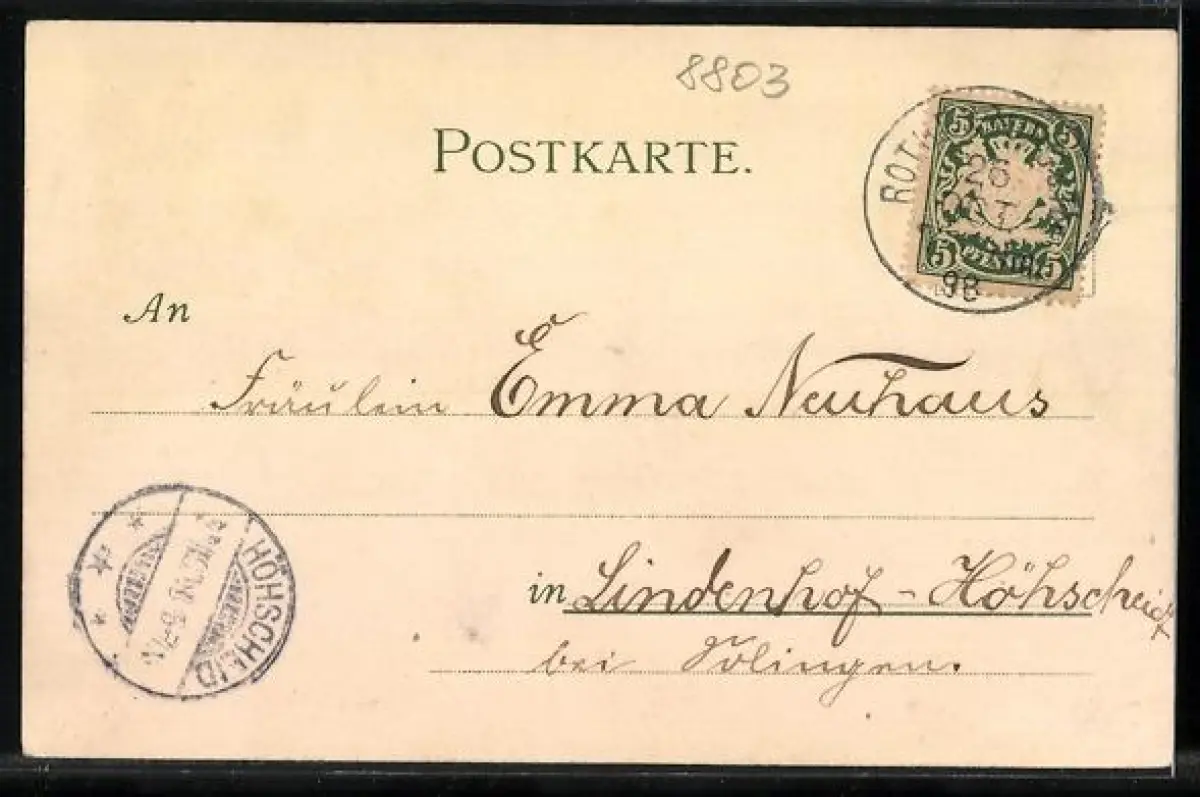 8803
POSTKARTE.
5 BAYERN 5
26
OCT
98
5 PFENNIG 5
An
Fräulein Emma Neuhaus
HÖHSCHEID
in Lindenhof - Höhscheid
bei Solingen.